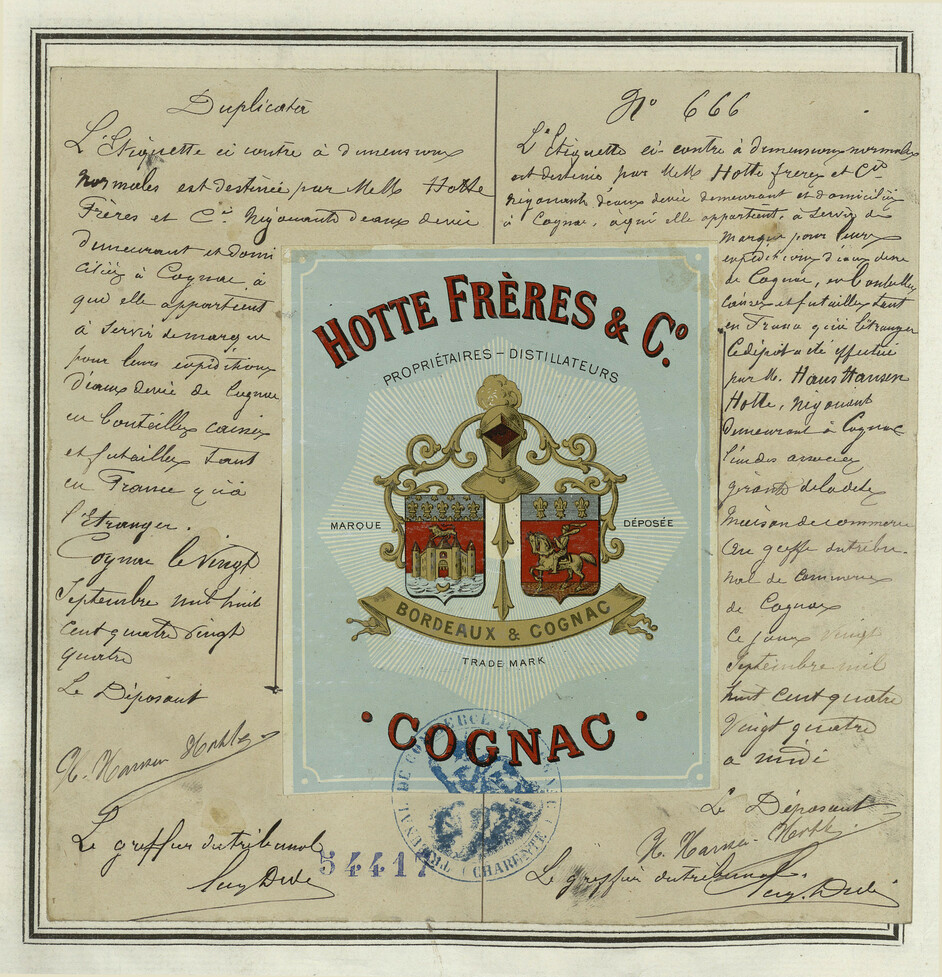 Duplicata
L'Etiquette ci contre à dimensions
normales est destinée par MM Hotte
Frères et Cie Négociants d'eaux de vie
demeurant et domi
ciliés à Cognac, à
qui elle appartient
à servir de marque
pour leurs expéditions
d'eaux de vie de Cognac
en bouteilles caisses
et futailles tant
en France qu'à
l'Etranger.
Cognac le vingt
Septembre mil huit
cent quatre vingt
quatre
Le Déposant
H. Hansen Hotte
Le greffier du tribunal
No 666
L'Etiquette ci contre à dimensions normales
est destinée par MM Hotte frères et Cie
négociants d'eaux de vie demeurant et domiciliés
à Cognac, à qui elle appartient, à servir de
marque pour leurs
expéditions d'eaux de vie
de Cognac, en bouteilles
caisses et futailles tant
en France qu'à l'étranger
Le dépôt a été effectué
par M. Hans Hansen
Hotte, négociant
demeurant à Cognac
l'un des associés
gérants de la dite
maison de commerce
au greffe du tribu-
nal de commerce
de Cognac
Ce jour vingt
Septembre mil
huit cent quatre
vingt quatre
à midi
Le Déposant
H. Hansen Hotte
Le greffier du tribunal
HOTTE FRÈRES & Co.
PROPRIÉTAIRES – DISTILLATEURS
MARQUE DÉPOSÉE
BORDEAUX & COGNAC
TRADE MARK
• COGNAC •
TRIBUNAL DE COMMERCE DE COGNAC
(CHARENTE)
54417